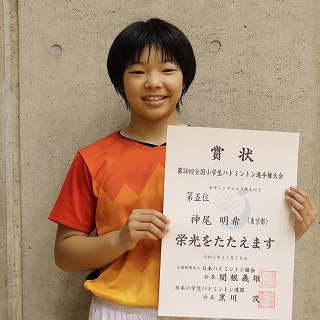 賞状
第30回全国小学生バドミントン選手権大会
女子シングルス5年生以下
第五位
神尾 明希 (東京都)
栄光をたたえます
令和3年12月25日
公益財団法人 日本バドミントン協会
会長 関根義雄
日本小学生バドミントン連盟
会長 黒川 茂